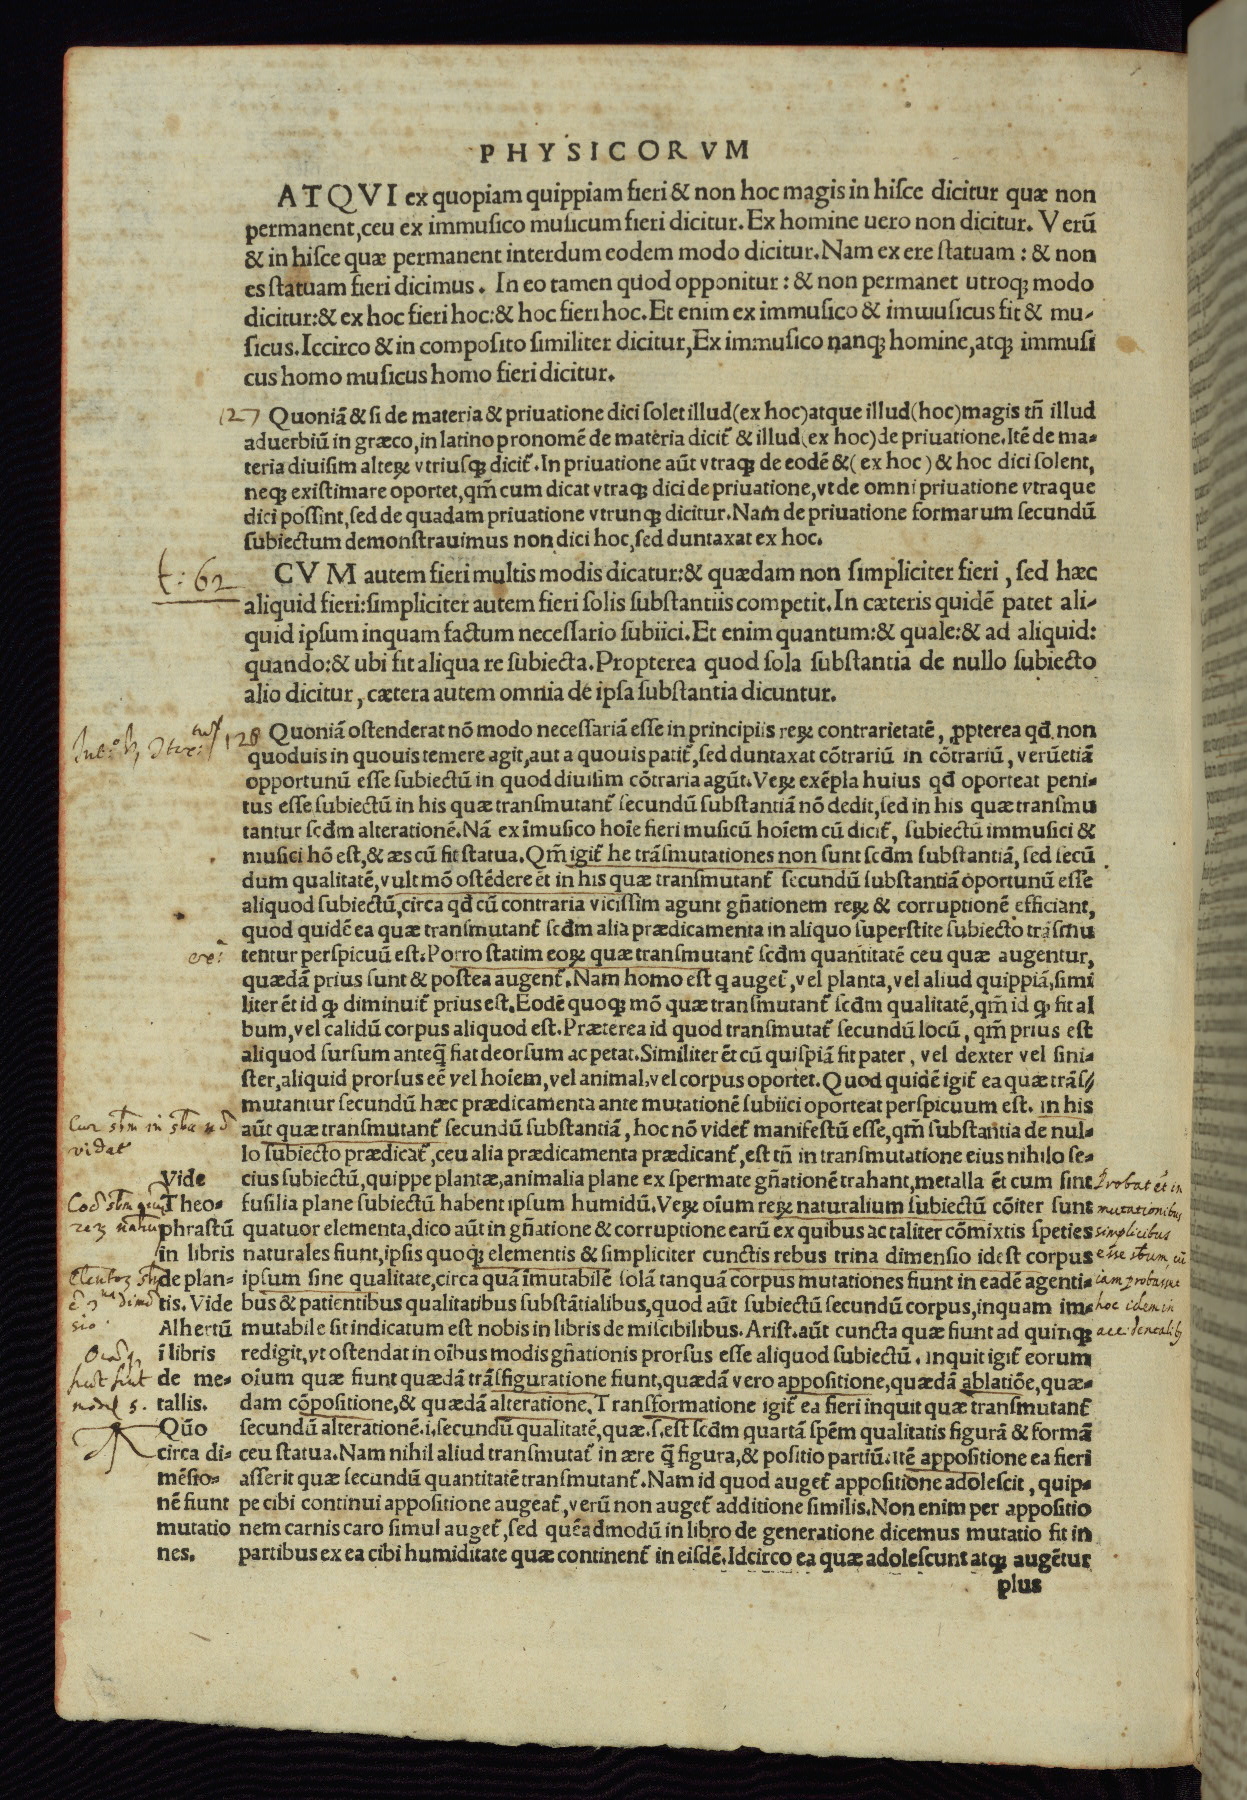 PHYSICORVM
ATQVI ex quopiam quippiam fieri & non hoc magis in hisce dicitur quæ non
permanent,ceu ex immusico musicum fieri dicitur. Ex homine uero non dicitur. Verũ
& in hisce quæ permanent interdum eodem modo dicitur. Nam ex ere statuam : & non
es statuam fieri dicimus. In eo tamen quod opponitur : & non permanet utroqꝫ modo
dicitur:& ex hoc fieri hoc:& hoc fieri hoc. Et enim ex immusico & immusicus fit & mu-
sicus. Iccirco & in composito similiter dicitur, Ex immusico nanqꝫ homine, atqꝫ immusi
cus homo musicus homo fieri dicitur.
127 Quoniã & si de materia & priuatione dici solet illud(ex hoc)atque illud(hoc)magis tñ illud
aduerbiũ in græco, in latino pronomẽ de materia dicit̃ & illud(ex hoc)de priuatione. Itẽ de ma-
teria diuisim alteꝝ vtriusqꝫ dicit̃. In priuatione aũt vtraqꝫ de eodẽ &(ex hoc) & hoc dici solent,
neqꝫ existimare oportet, qm̃ cum dicat vtraqꝫ dici de priuatione, vt de omni priuatione vtraque
dici possint, sed de quadam priuatione vtrunqꝫ dicitur. Nam de priuatione formarum secundũ
subiectum demonstrauimus non dici hoc, sed duntaxat ex hoc.
t: 62
CVM autem fieri multis modis dicatur:& quædam non simpliciter fieri , sed hæc
aliquid fieri:simpliciter autem fieri solis substantiis competit. In cæteris quidẽ patet ali-
quid ipsum inquam factum necessario subiici. Et enim quantum:& quale:& ad aliquid:
quando:& ubi fit aliqua re subiecta. Propterea quod sola substantia de nullo subiecto
alio dicitur, cætera autem omnia de ipsa substantia dicuntur.
128 Quoniã ostenderat nõ modo necessariã esse in principiis reꝝ contrarietatẽ, ꝓpterea qđ non
quoduis in quouis temere agit, aut a quouis patit̃, sed duntaxat cõtrariũ in cõtrariũ, verũetiã
opportunũ esse subiectũ in quod diuisim cõtraria agũt. Veꝝ exẽpla huius qđ oporteat peni-
tus esse subiectũ in his quæ transmutant̃ secundũ substantiã nõ dedit, sed in his quæ transmu
tantur scđm alterationẽ. Nã ex ĩmusico hoĩe fieri musicũ hoĩem cũ dicit̃, subiectũ immusici &
musici hõ est, & æs cũ fit statua. Qm̃ igit̃ he trãsmutationes non sunt scđm substantiã, sed secũ
dum qualitatẽ, vult mõ ostẽdere et in his quæ transmutant̃ secundũ substantiã oportunũ esse
aliquod subiectũ, circa qđ cũ contraria vicissim agunt gñationem reꝝ & corruptionẽ efficiant,
quod quidẽ ea quæ transmutant̃ scđm alia prædicamenta in aliquo superstite subiecto trãsmu
tentur perspicuũ est. Porro statim eoꝝ quæ transmutant̃ scđm quantitatẽ ceu quæ augentur,
quædã prius sunt & postea augent̃. Nam homo est q auget̃, vel planta, vel aliud quippiã, simi
liter ẽt id qꝫ diminuit̃ prius est. Eodẽ quoqꝫ mõ quæ transmutant̃ scđm qualitatẽ, qm̃ id qꝫ fit al
bum, vel calidũ corpus aliquod est. Præterea id quod transmutat̃ secundũ locũ, qm̃ prius est
aliquod sursum anteq̃ fiat deorsum ac petat. Similiter ẽt cũ quispiã fit pater, vel dexter vel sini-
ster, aliquid prorsus eẽ vel hoĩem, vel animal, vel corpus oportet. Quod quidẽ igit̃ ea quæ trãs-
mutantur secundũ hæc prædicamenta ante mutationẽ subiici oporteat perspicuum est. in his
aũt quæ transmutant̃ secundũ substantiã, hoc nõ videt̃ manifestũ esse, qm̃ substantia de nul-
lo subiecto prædicat̃, ceu alia prædicamenta prædicant̃, est tñ in transmutatione eius nihilo se-
cius subiectũ, quippe plantæ, animalia plane ex spermate gñationẽ trahant, metalla ẽt cum sint
fusilia plane subiectũ habent ipsum humidũ. Veꝝ oĩum reꝝ naturalium subiectũ cõiter sunt
quatuor elementa, dico aũt in gñatione & corruptione earũ ex quibus ac taliter cõmixtis species
naturales fiunt, ipsis quoqꝫ elementis & simpliciter cunctis rebus trina dimensio idest corpus
ipsum sine qualitate, circa quã ĩmutabilẽ solã tanquã corpus mutationes fiunt in eadẽ agenti-
bus & patientibus qualitatibus substãtialibus, quod aũt subiectũ secundũ corpus, inquam im-
mutabile sit indicatum est nobis in libris de miscibilibus. Arist. aũt cuncta quæ fiunt ad quinqꝫ
redigit, vt ostendat in oĩbus modis gñationis prorsus esse aliquod subiectũ. inquit igit̃ eorum
oĩum quæ fiunt quædã trãsfiguratione fiunt, quædã vero appositione, quædã ablatiõe, quæ-
dam cõpositione, & quædã alteratione. Transformatione igit̃ ea fieri inquit quæ transmutant̃
secundũ alterationẽ. i. secundũ qualitatẽ, quæ. s. est scđm quartã spẽm qualitatis figurã & formã
ceu statua. Nam nihil aliud transmutat̃ in ære q̃ figura, & positio partiũ. itẽ appositione ea fieri
asserit quæ secundũ quantitatẽ transmutant̃. Nam id quod auget̃ appositione adolescit, quip-
pe cibi continui appositione augeat̃, verũ non auget̃ additione similis. Non enim per appositio
nem carnis caro simul auget̃, sed quẽadmodũ in libro de generatione dicemus mutatio fit in
partibus ex ea cibi humiditate quæ continent̃ in eisdẽ. Idcirco ea quæ adolescunt atqꝫ augẽtur
plus
Vide
Theo-
phrastũ
in libris
de plan-
tis. Vide
Albertũ
ĩ libris
de me-
tallis.
Qũo
circa di-
mẽsio-
nẽ fiunt
mutatio
nes.
Probat et in
mutationibus
simplicibus
hoc idem in